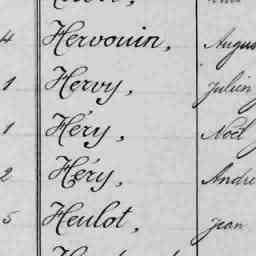 4 Hervouin, Augus
1 Hervy, Julien
1 Héry, Noël
2 Héry, André
5 Heulot, Jean